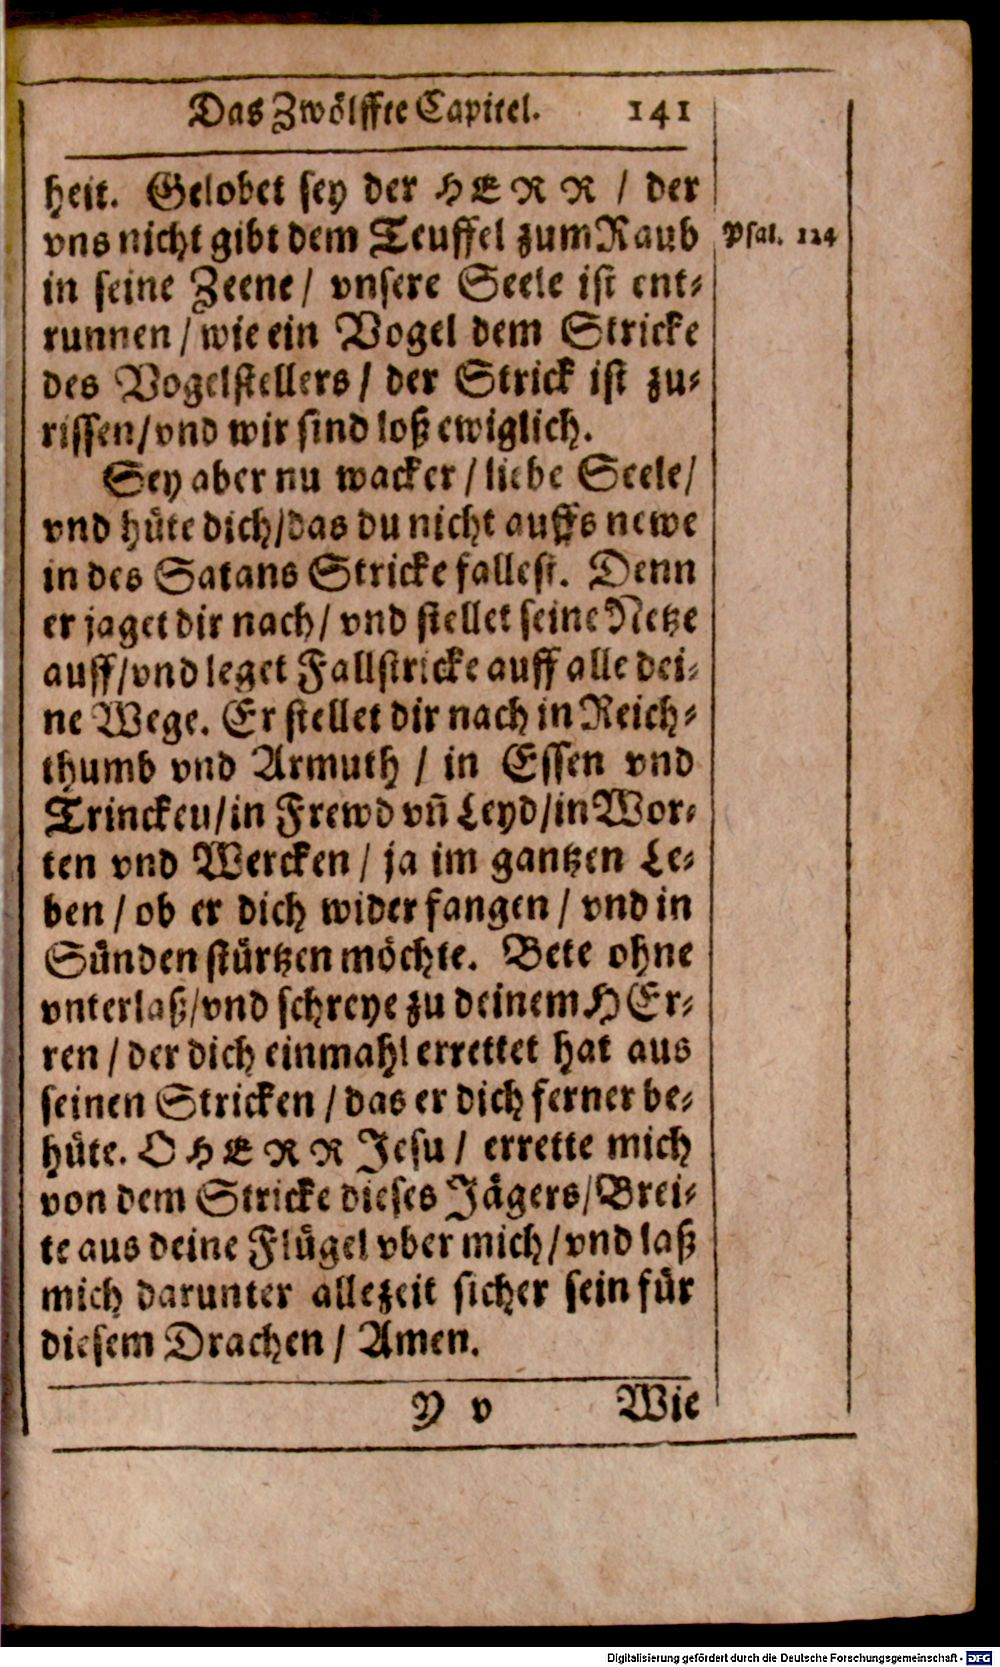 Das Zwölffte Capitel. 141
heit. Gelobet sey der HERR / der
vns nicht gibt dem Teuffel zum Raub
Psal. 124
in seine Zeene / vnsere Seele ist ent-
runnen / wie ein Vogel dem Stricke
des Vogelstellers / der Strick ist zu-
rissen / vnd wir sind loß ewiglich.
Sey aber nu wacker / liebe Seele /
vnd hüte dich / das du nicht auffs newe
in des Satans Stricke fallest. Denn
er jaget dir nach / vnd stellet seine Netze
auff / vnd leget Fallstricke auff alle dei-
ne Wege. Er stellet dir nach in Reich-
thumb vnd Armuth / in Essen vnd
Trincken / in Frewd vñ Leyd / in Wor-
ten vnd Wercken / ja im gantzen Le-
ben / ob er dich wider fangen / vnd in
Sünden stürtzen möchte. Bete ohne
vnterlaß / vnd schreye zu deinem HEr-
ren / der dich einmahl errettet hat aus
seinen Stricken / das er dich ferner be-
hüte. O HERR Jesu / errette mich
von dem Stricke dieses Jägers / Brei-
te aus deine Flügel vber mich / vnd laß
mich darunter allezeit sicher sein für
diesem Drachen / Amen.
Y v Wie
Digitalisierung gefördert durch die Deutsche Forschungsgemeinschaft - DFG